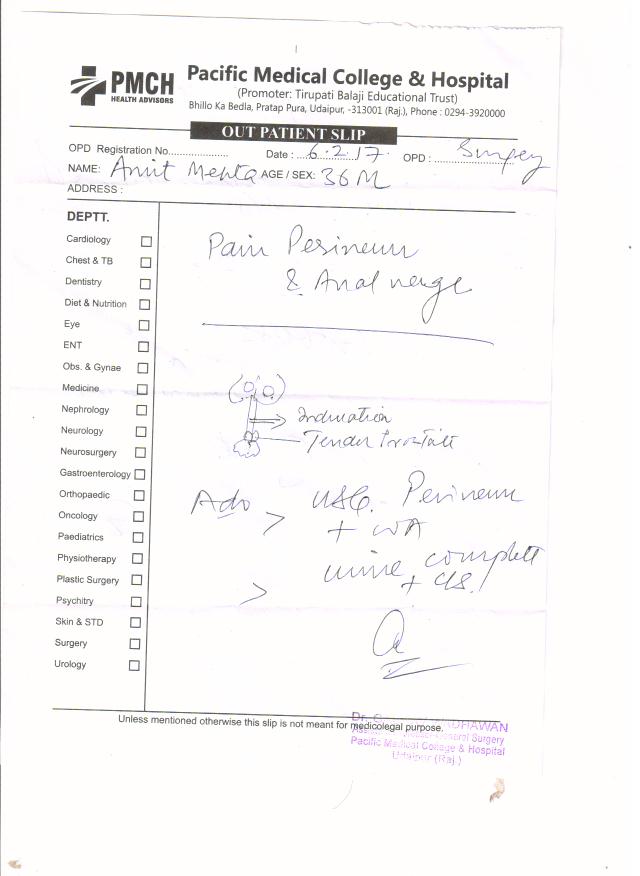 PMCH
HEALTH ADVISORS
Pacific Medical College & Hospital
(Promoter: Tirupati Balaji Educational Trust)
Bhillo Ka Bedla, Pratap Pura, Udaipur, -313001 (Raj.), Phone : 0294-3920000
OUT PATIENT SLIP
OPD Registration No.................... Date : 6.2.17. OPD :
NAME: Amit Mehta AGE / SEX: 36 M
ADDRESS :
DEPTT.
Cardiology
Chest & TB
Dentistry
Diet & Nutrition
Eye
ENT
Obs. & Gynae
Medicine
Nephrology
Neurology
Neurosurgery
Gastroenterology
Orthopaedic
Oncology
Paediatrics
Physiotherapy
Plastic Surgery
Psychitry
Skin & STD
Surgery
Urology
Pain Perineum
& Anal verge
Induration
Tender Prostate
Adv > USG. Perineum
+
> urine complete
+ c/s.
Unless mentioned otherwise this slip is not meant for medicolegal purpose.
Dr.
General Surgery
Pacific Medical College & Hospital
Udaipur (Raj.)